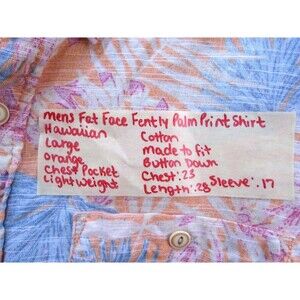 mens Fat Face Fently Palm Print Shirt
Hawaiian
Large
orange
Chest Pocket
Lightweight
Cotton
made to fit
Button Down
Chest: 23
Length: 28 Sleeve: 17